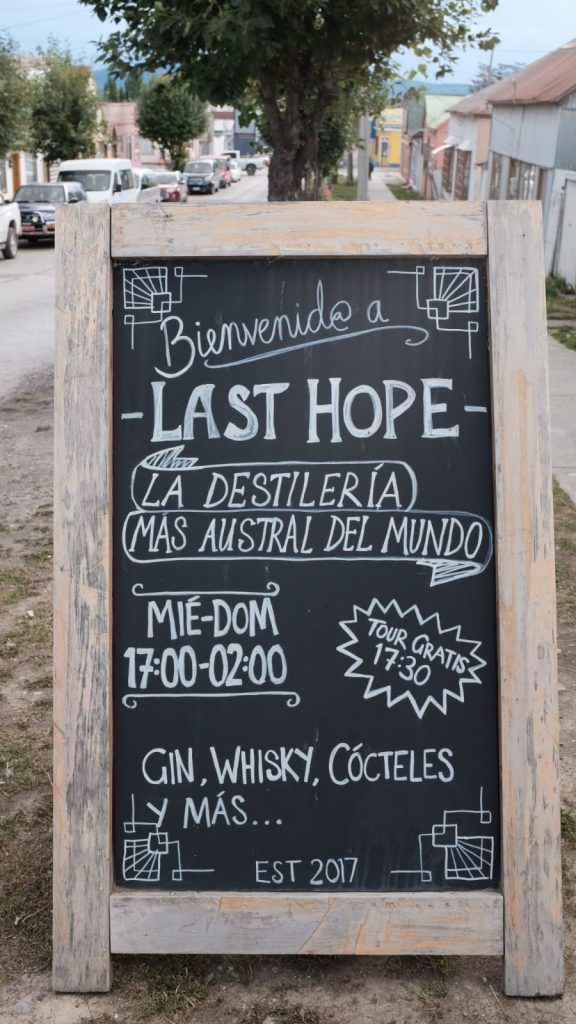 Bienvenid@ a
-LAST HOPE-
LA DESTILERÍA
MÁS AUSTRAL DEL MUNDO
MIÉ-DOM
17:00-02:00
TOUR GRATIS
17:30
GIN, WHISKY, CÓCTELES
Y MÁS...
EST 2017